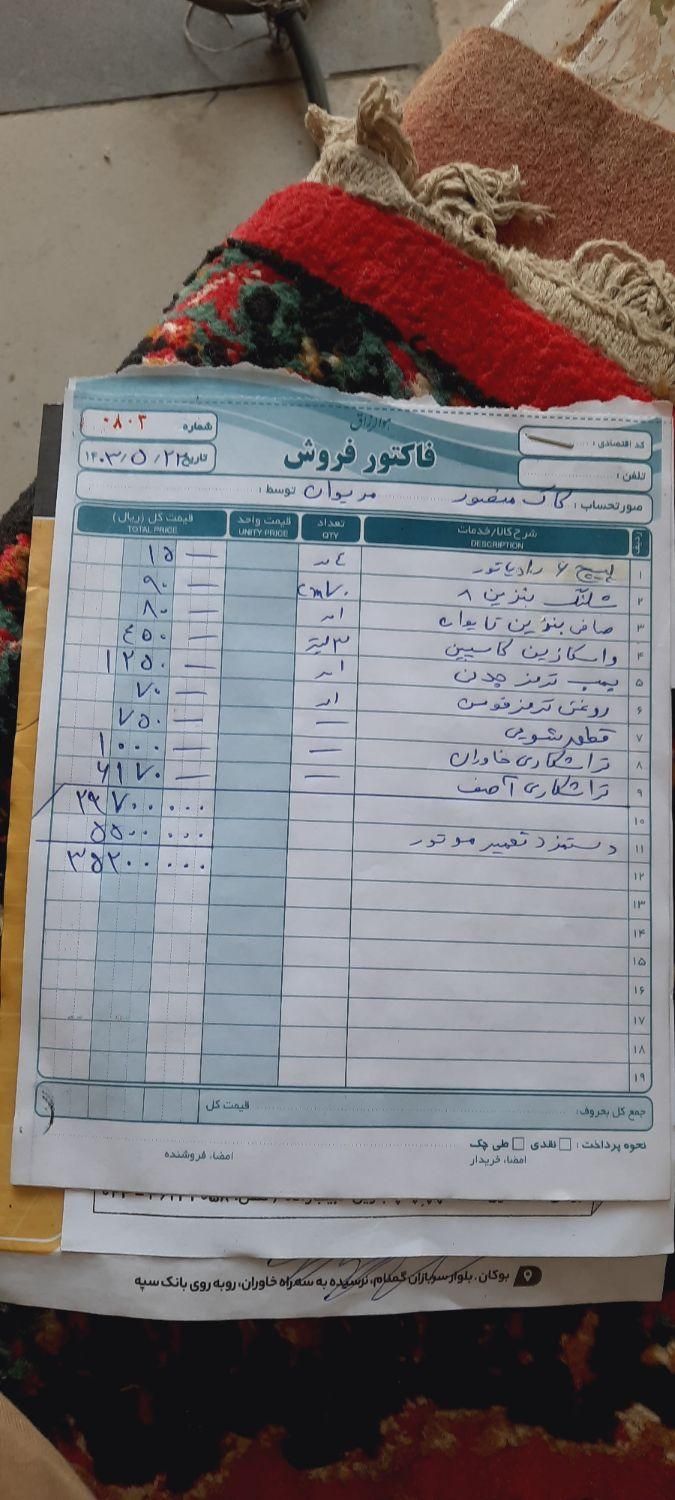 هوالرزاق
شماره ۰۸۰۳
فاکتور فروش
کد اقتصادی :
تاریخ ۱۴۰۳/۵/۲۲
تلفن :
صورتحساب : کاک منصور مریوان توسط :
ردیف شرح کالا/خدمات DESCRIPTION تعداد QTY قیمت واحد UNITY PRICE قیمت کل (ریال) TOTAL PRICE
۱ پیچ ۶ رادیاتور ۴ عدد ۱۵ —
۲ شلنگ بنزین ۸ ۷۰ cm ۹۰ —
۳ صافی بنزین تایوان ۱ عدد ۸۰ —
۴ واسکازین کاسپین ۳ لیتر ۴۵۰ —
۵ پمپ ترمز چدن ۱ عدد ۱۲۵۰ —
۶ روغن ترمز قوس ۱ عدد ۷۰ —
۷ قطعه شویی — ۷۵۰ —
۸ تراشکاری خاوران — ۱۰۰۰ —
۹ تراشکاری آصف — ۶۱۷۰ —
۱۰ ۲۹۷۰۰۰۰۰
۱۱ دستمزد تعمیر موتور ۵۵۰۰۰۰۰
۱۲ ۳۵۲۰۰۰۰۰
۱۳
۱۴
۱۵
۱۶
۱۷
۱۸
۱۹
جمع کل بحروف: قیمت کل
نحوه پرداخت : نقدی طی چک
امضاء خریدار امضاء فروشنده
بوکان، بلوار سربازان گمنام، نرسیده به سه راه خاوران، روبه روی بانک سپه